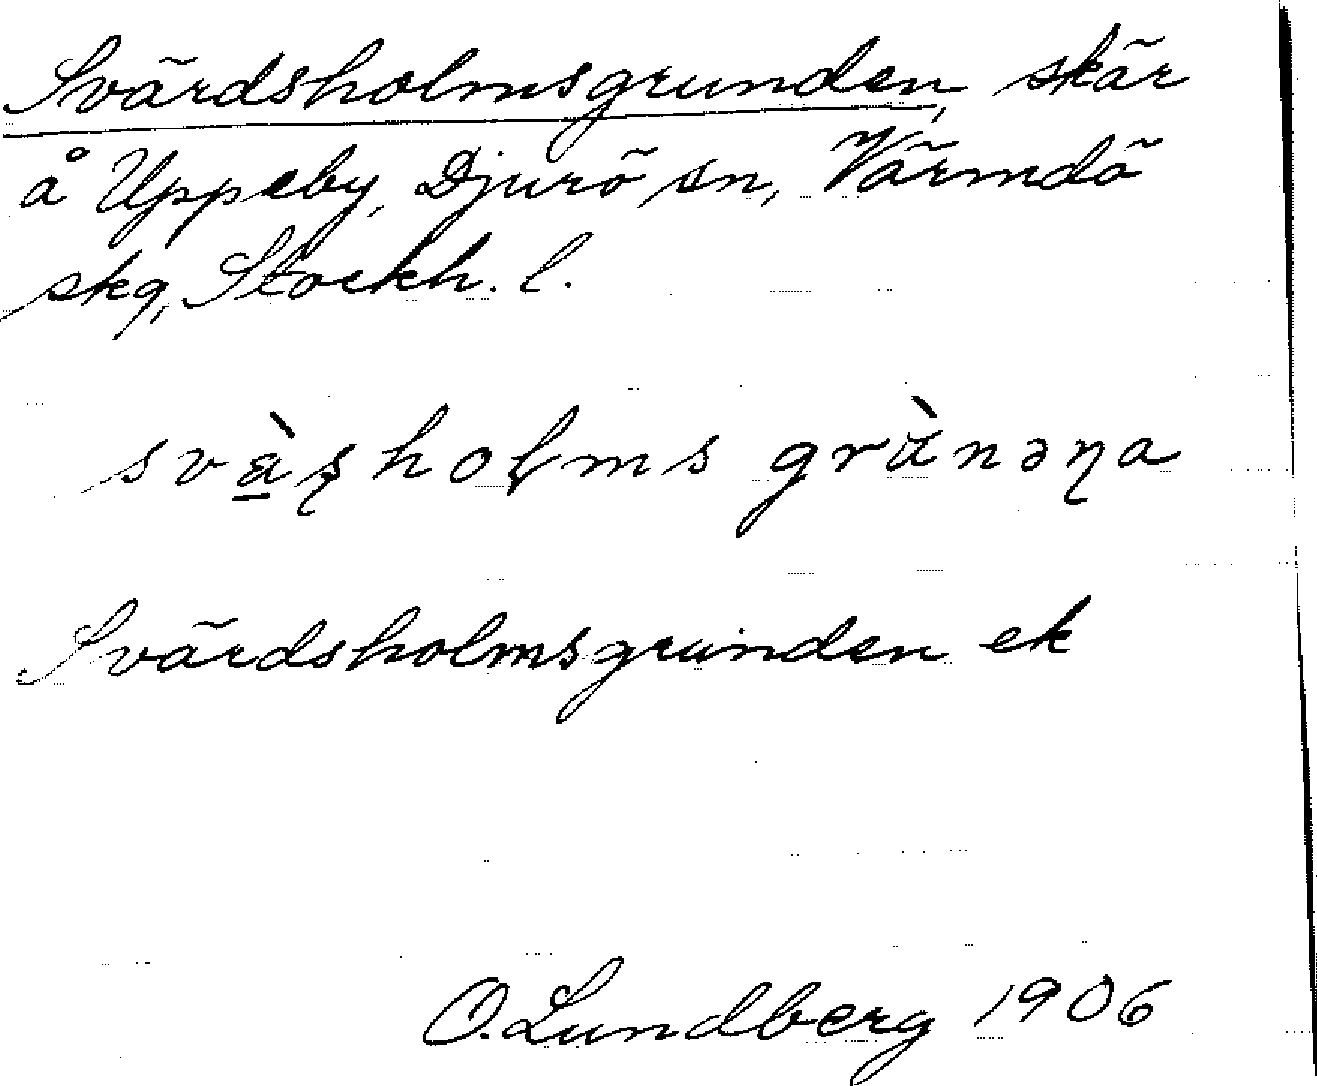 Svärdsholmsgrunden, skär
å Uppeby, Djurö sn, Värmdö
skg, Stockh. l.
svà̱ʂholms grànəɳa
Svärdsholmsgrunden ek
O. Lundberg 1906